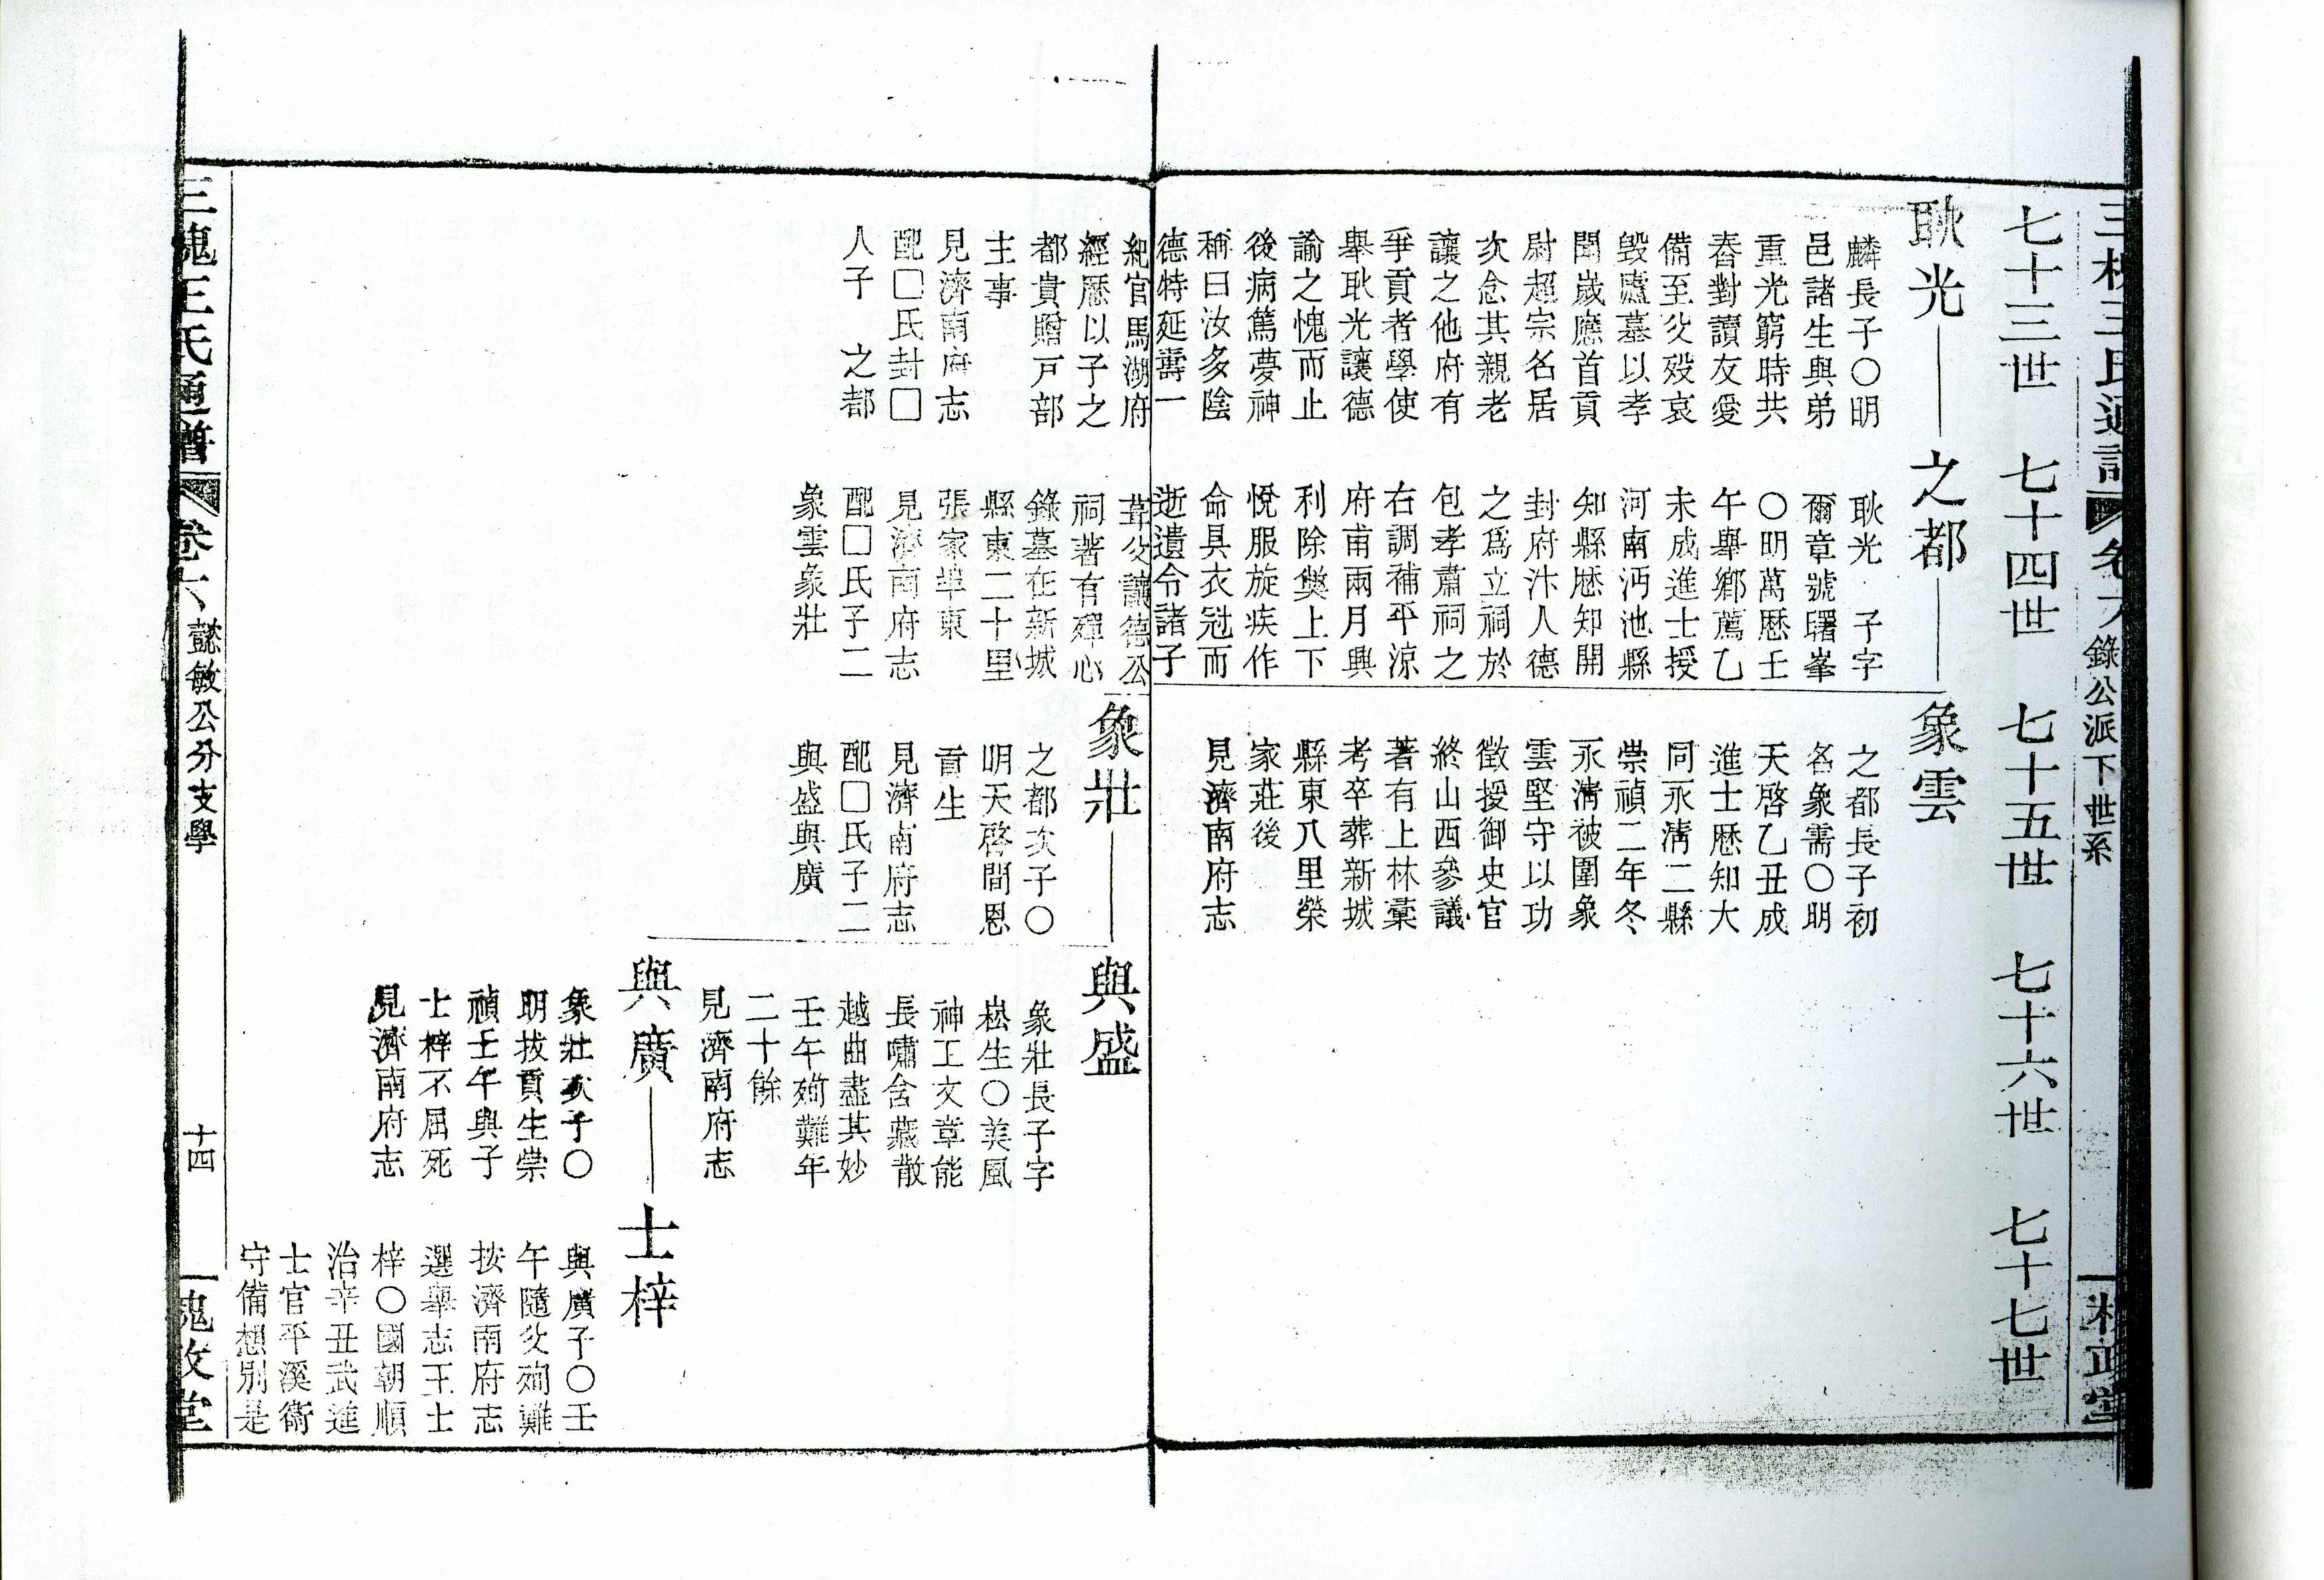 七十三世　七十四世　七十五世　七十六世　七十七世
耿光
麟長子○明
邑諸生與弟
重光窮時共
舂對讀友愛
備至父歿哀
毀廬墓以孝
聞歲應首貢
尉超宗名居
次念其親老
讓之他府有
爭貢者學使
舉耿光讓德
諭之愧而止
後病篤夢神
稱曰汝多陰
德特延壽一
紀官馬湖府
經歷以子之
都貴贈戸部
主事
見濟南府志
配□氏封□
人子　之都
之都
耿光　子字
爾章號曙峯
○明萬歷壬
午舉鄉薦乙
未成進士授
河南沔池縣
知縣歷知開
封府汴人德
之爲立祠於
包孝肅祠之
右調補平涼
府甫兩月興
利除獘上下
悅服旋疾作
命具衣冠而
逝遺令諸子
葺父讓德公
祠著有殫心
錄墓在新城
縣東二十里
張家埠東
見濟南府志
配□氏子二
象雲象壯
象雲
之都長子初
名象需○明
天啓乙丑成
進士歷知大
同永淸二縣
崇禎二年冬
永淸被圍象
雲堅守以功
徵授御史官
終山西參議
著有上林彙
考卒葬新城
縣東八里榮
家莊後
見濟南府志
象壯
之都次子○
明天啓間恩
貢生
見濟南府志
配□氏子二
與盛與廣
與盛
象壯長子字
崧生○美風
神工文章能
長嘯含蘸散
越曲盡其妙
壬午殉難年
二十餘
見濟南府志
與廣
象壯次子○
明拔貢生崇
禎壬午與子
士梓不屈死
見濟南府志
士梓
與廣子○壬
午隨父殉難
按濟南府志
選舉志王士
梓○國朝順
治辛丑武進
士官平溪衛
守備想別是
三槐王氏通譜　卷六　懿敏公分支學　十四　槐政堂